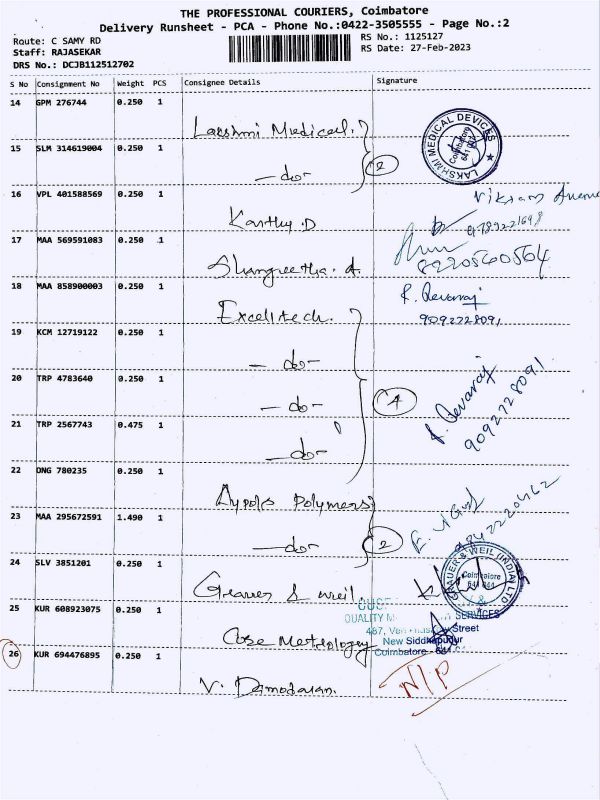 THE PROFESSIONAL COURIERS, Coimbatore
Delivery Runsheet - PCA - Phone No.:0422-3505555 - Page No.:2
Route: C SAMY RD
RS No.: 1125127
Staff: RAJASEKAR
RS Date: 27-Feb-2023
DRS No.: DCJB112512702
S No Consignment No Weight PCS Consignee Details Signature
14 GPM 276744 0.250 1 Lakshmi Medical.
LAKSHMI MEDICAL DEVICES
Coimbatore
15 SLM 314619004 0.250 1 -do- 2
16 VPL 401588569 0.250 1 Karthy.D
9789221698
17 MAA 569591083 0.250 1 Shangeetha. A.
8220560564
18 MAA 858900003 0.250 1 Excelitech.
R. Devaraj
9092728091
19 KCM 12719122 0.250 1 -do-
20 TRP 4783640 0.250 1 -do- 4
R. Devaraj
9092728091
21 TRP 2567743 0.475 1 -do-
22 DNG 780235 0.250 1 Polymers
23 MAA 295672591 1.490 1 -do- 2
24 SLV 3851201 0.250 1 Grauer & Weil.
GRAUER & WEIL (INDIA) LTD
Coimbatore
25 KUR 608923075 0.250 1 Case Metrology
QUALITY
& SERVICES
467,
Street
New Siddhapudur
Coimbatore
26 KUR 694476895 0.250 1 V. Damodaran.
N/P